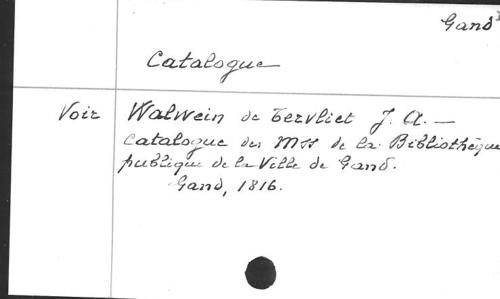 Gand
Catalogue
Voir Walwein de Tervliet J. A. —
Catalogue des Mss de la Bibliothèque
publique de la Ville de Gand.
Gand, 1816.